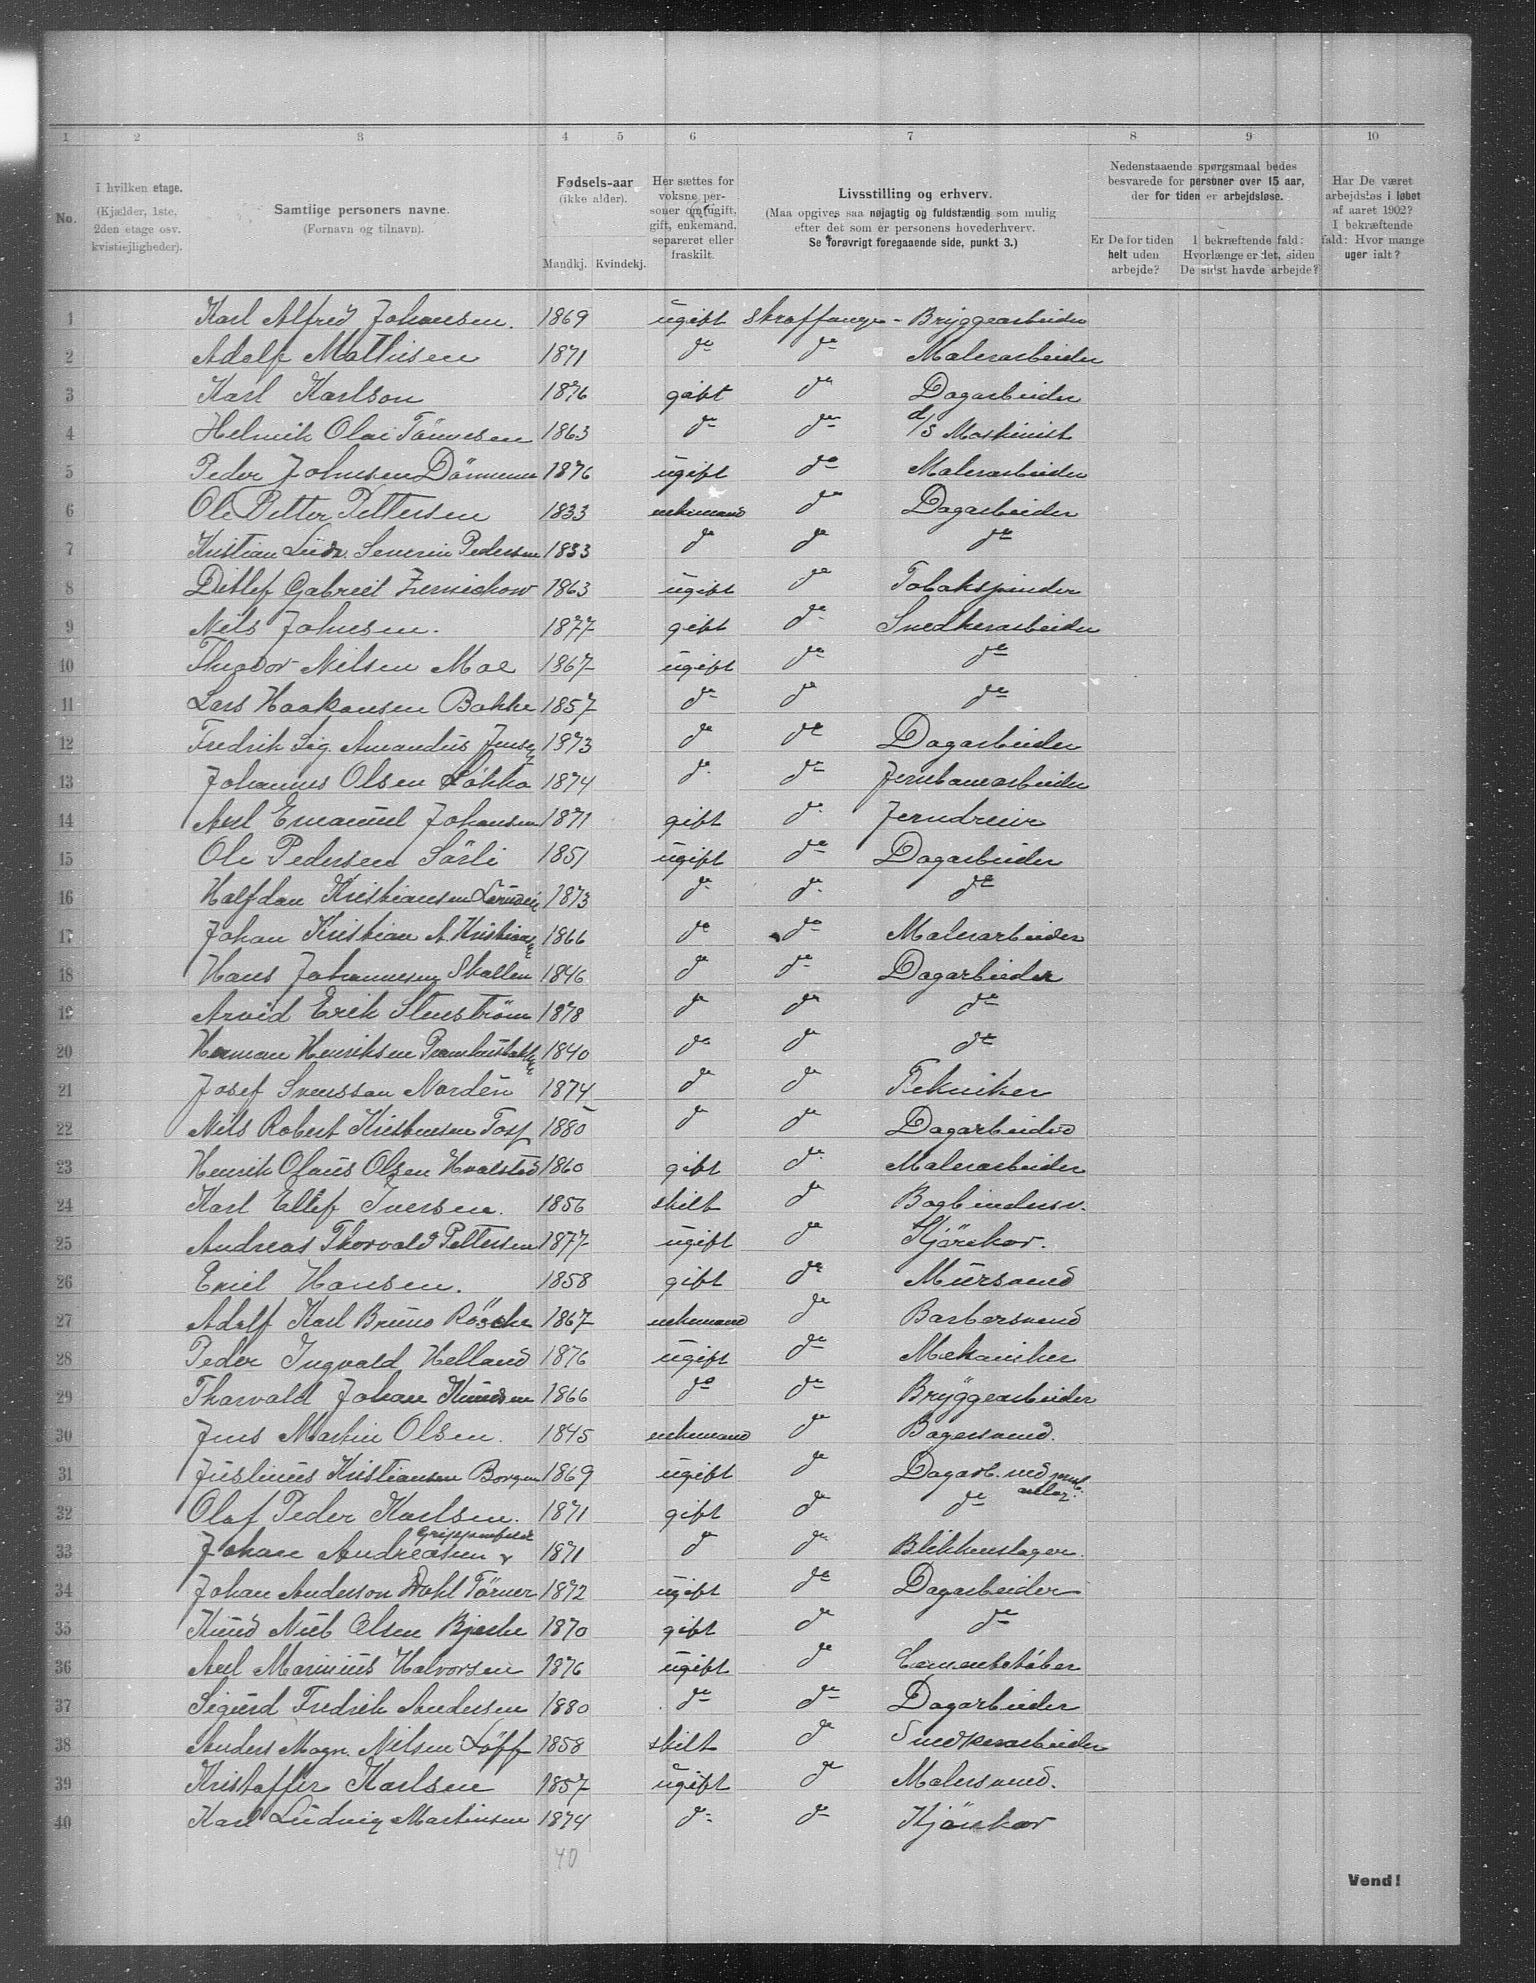 1 2 3 4 5 6 7 8 9 10
No.
I hvilken etage.
(Kjælder, 1ste, 2den etage osv. kvistlejligheder).
Samtlige personers navne.
(Fornavn og tilnavn).
Fødsels-aar
(ikke alder).
Mandkj. Kvindekj.
Her sættes for voksne personer om ugift, gift, enkemand, separeret eller fraskilt.
Livsstilling og erhverv.
(Maa opgives saa nøjagtig og fuldstændig som mulig efter det som er personens hovederhverv.
Se forøvrigt foregaaende side, punkt 3.)
Nedenstaaende spørgsmaal bedes besvarede for personer over 15 aar, der for tiden er arbejdsløse.
Er De for tiden helt uden arbejde?
I bekræftende fald: Hvorlænge er det, siden De sidst havde arbejde?
Har De været arbejdsløs i løbet af aaret 1902? I bekræftende fald: Hvor mange uger ialt?
1 Karl Alfred Johansen. 1869 ugift Straffange - Bryggearbeider
2 Adolf Mathisen 1871 do do Malerarbeider
3 Karl Karlson 1876 gift do Dagarbeider
4 Helmik Olai Tönnesen 1863 do do d/s Maskinist
5 Peder Johnsen 1876 ugift do Malerarbeider
6 Ole Petter Pettersen 1833 enkemand do Dagarbeider
7 Kristian Ludv. Severin Pedersen 1833 do do do
8 Ditlef Gabriel Zernichow 1863 ugift do Tobakspinder
9 Nils Johnsen. 1877 gift do Snedkerarbeider
10 Theodor Nilsen Moe 1867 ugift do do
11 Lars Haakonsen Bakke 1857 do do do
12 Fredrik Sig. Amandus Jensen 1873 do do Dagarbeider
13 Johannes Olsen Løkka 1874 do do Jernbanearbeider
14 Axel Emanuel Johansen 1871 gift do Jerndreier
15 Ole Pedersen Sörli 1851 ugift do Dagarbeider
16 Halfdan Kristiansen 1873 do do do
17 Johan Kristian A. Kristiansen 1866 do do Malerarbeider
18 Hans Johannesen Skallen 1846 do do Dagarbeider
19 Arvid Erik Stenström 1878 do do do
20 Herman Henriksen 1840 do do do
21 Josef Svensson Nordén 1874 do do Tekniker
22 Nils Robert Kristensen 1880 do do Dagarbeider
23 Henrik Olaus Olsen Hvalstad 1860 gift do Malerarbeider
24 Karl Ellef Iversen. 1856 skilt do Bogbindersv.
25 Andreas Thorvald Pettersen 1877 ugift do Kjörekar.
26 Emil Hansen. 1858 gift do Mursvend
27 Adolf Karl Bruno Röschke 1867 enkemand do Barbersvend
28 Peder Ingvald Helland 1876 ugift do Mekaniker
29 Thorvald Johan Knudsen 1866 do do Bryggearbeider
30 Jens Martin Olsen. 1845 enkemand do Bagersvend.
31 Justinus Kristiansen Borgen 1869 ugift do Dagarb. ved
32 Olaf Peder Karlsen. 1871 gift do do
33 Johan Andreasen Grippenfeldt 1871 do do Blikkenslager.
34 Johan Anderson Dahl Törner 1872 ugift do Dagarbeider
35 Knud Nieb Olsen Bjerke 1870 gift do do
36 Axel Marinius Halvorsen 1876 ugift do Cementstøber
37 Sigurd Fredrik Andersen 1880 do do Dagarbeider
38 Anders Magn. Nilsen Löff 1858 skilt do Snedkerarbeider
39 Kristoffer Karlsen 1857 ugift do Malersvend.
40 Karl Ludvig Martinsen 1874 do do Kjörekar
40
Vend!